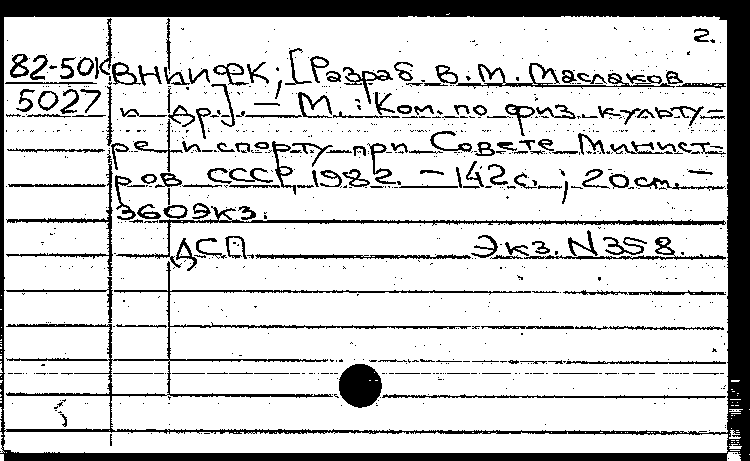 2.
82-50К ВНИИФК; [Разраб. В. М. Маслаков
5027 и др.]. — М. : Ком. по физ. культу-
ре и спорту при Совете Минист-
ров СССР, 1982. - 142 с. ; 20 см. -
360 экз.
ДСП Экз. N 358.